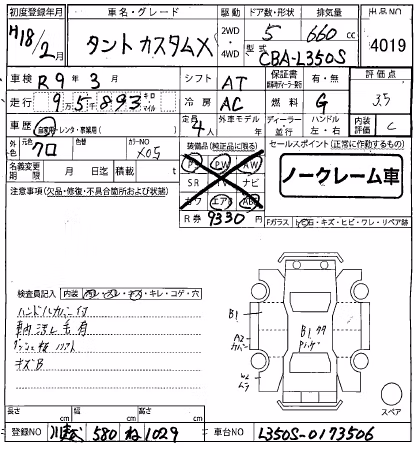 初度登録年月 車名・グレード 駆動 ドア数・形状 排気量 出品NO
H18/2月 タントカスタムX 2WD・4WD 5 660 cc 4019
型式 CBA-L350S
車検 R9年3月 シフト AT 保証書 有・無 評価点
走行 9万5千893 キロ マイル 冷房 AC 燃料 G 3.5
車歴 自家用・レンタ・事業用 定員 4人 外車モデル 年 ディーラー・並行 ハンドル 左・右 内装評価 C
外色 元色 クロ 色替 カラーNO X05 装備品(純正品に限る) セールスポイント(正常に作動するもの)
名義変更期限 月 日迄 積載 t PS PW AW ノークレーム車
注意事項(欠品・修復・不具合箇所および状態) SR ナビ
カワ エアB AB
R券 9330円 Fガラス 石・キズ・ヒビ・ワレ・リペア跡
検査員記入 内装 キレ・コゲ・穴
ハンドルカバー付
車内汚レ毛有
キズB
B1
A2
カバー
B1
W2
スペア
長さ cm 幅 cm 高さ cm
登録NO 580 ね 1029 車台NO L350S-0173506